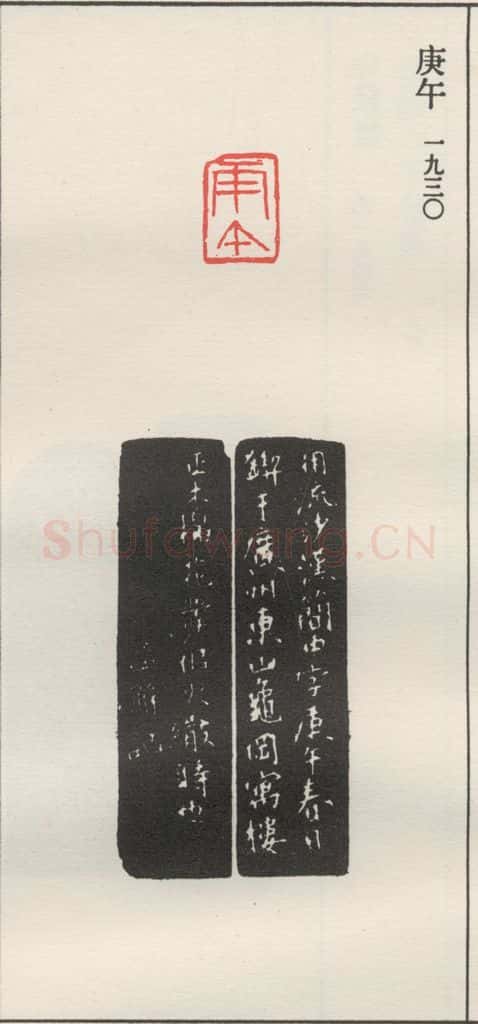 庚午 一九三〇
庚午
用流沙漢簡中字庚午春日
鍥于廣州東山龜岡寓樓
正木棉花時也
記
Shufawang.CN